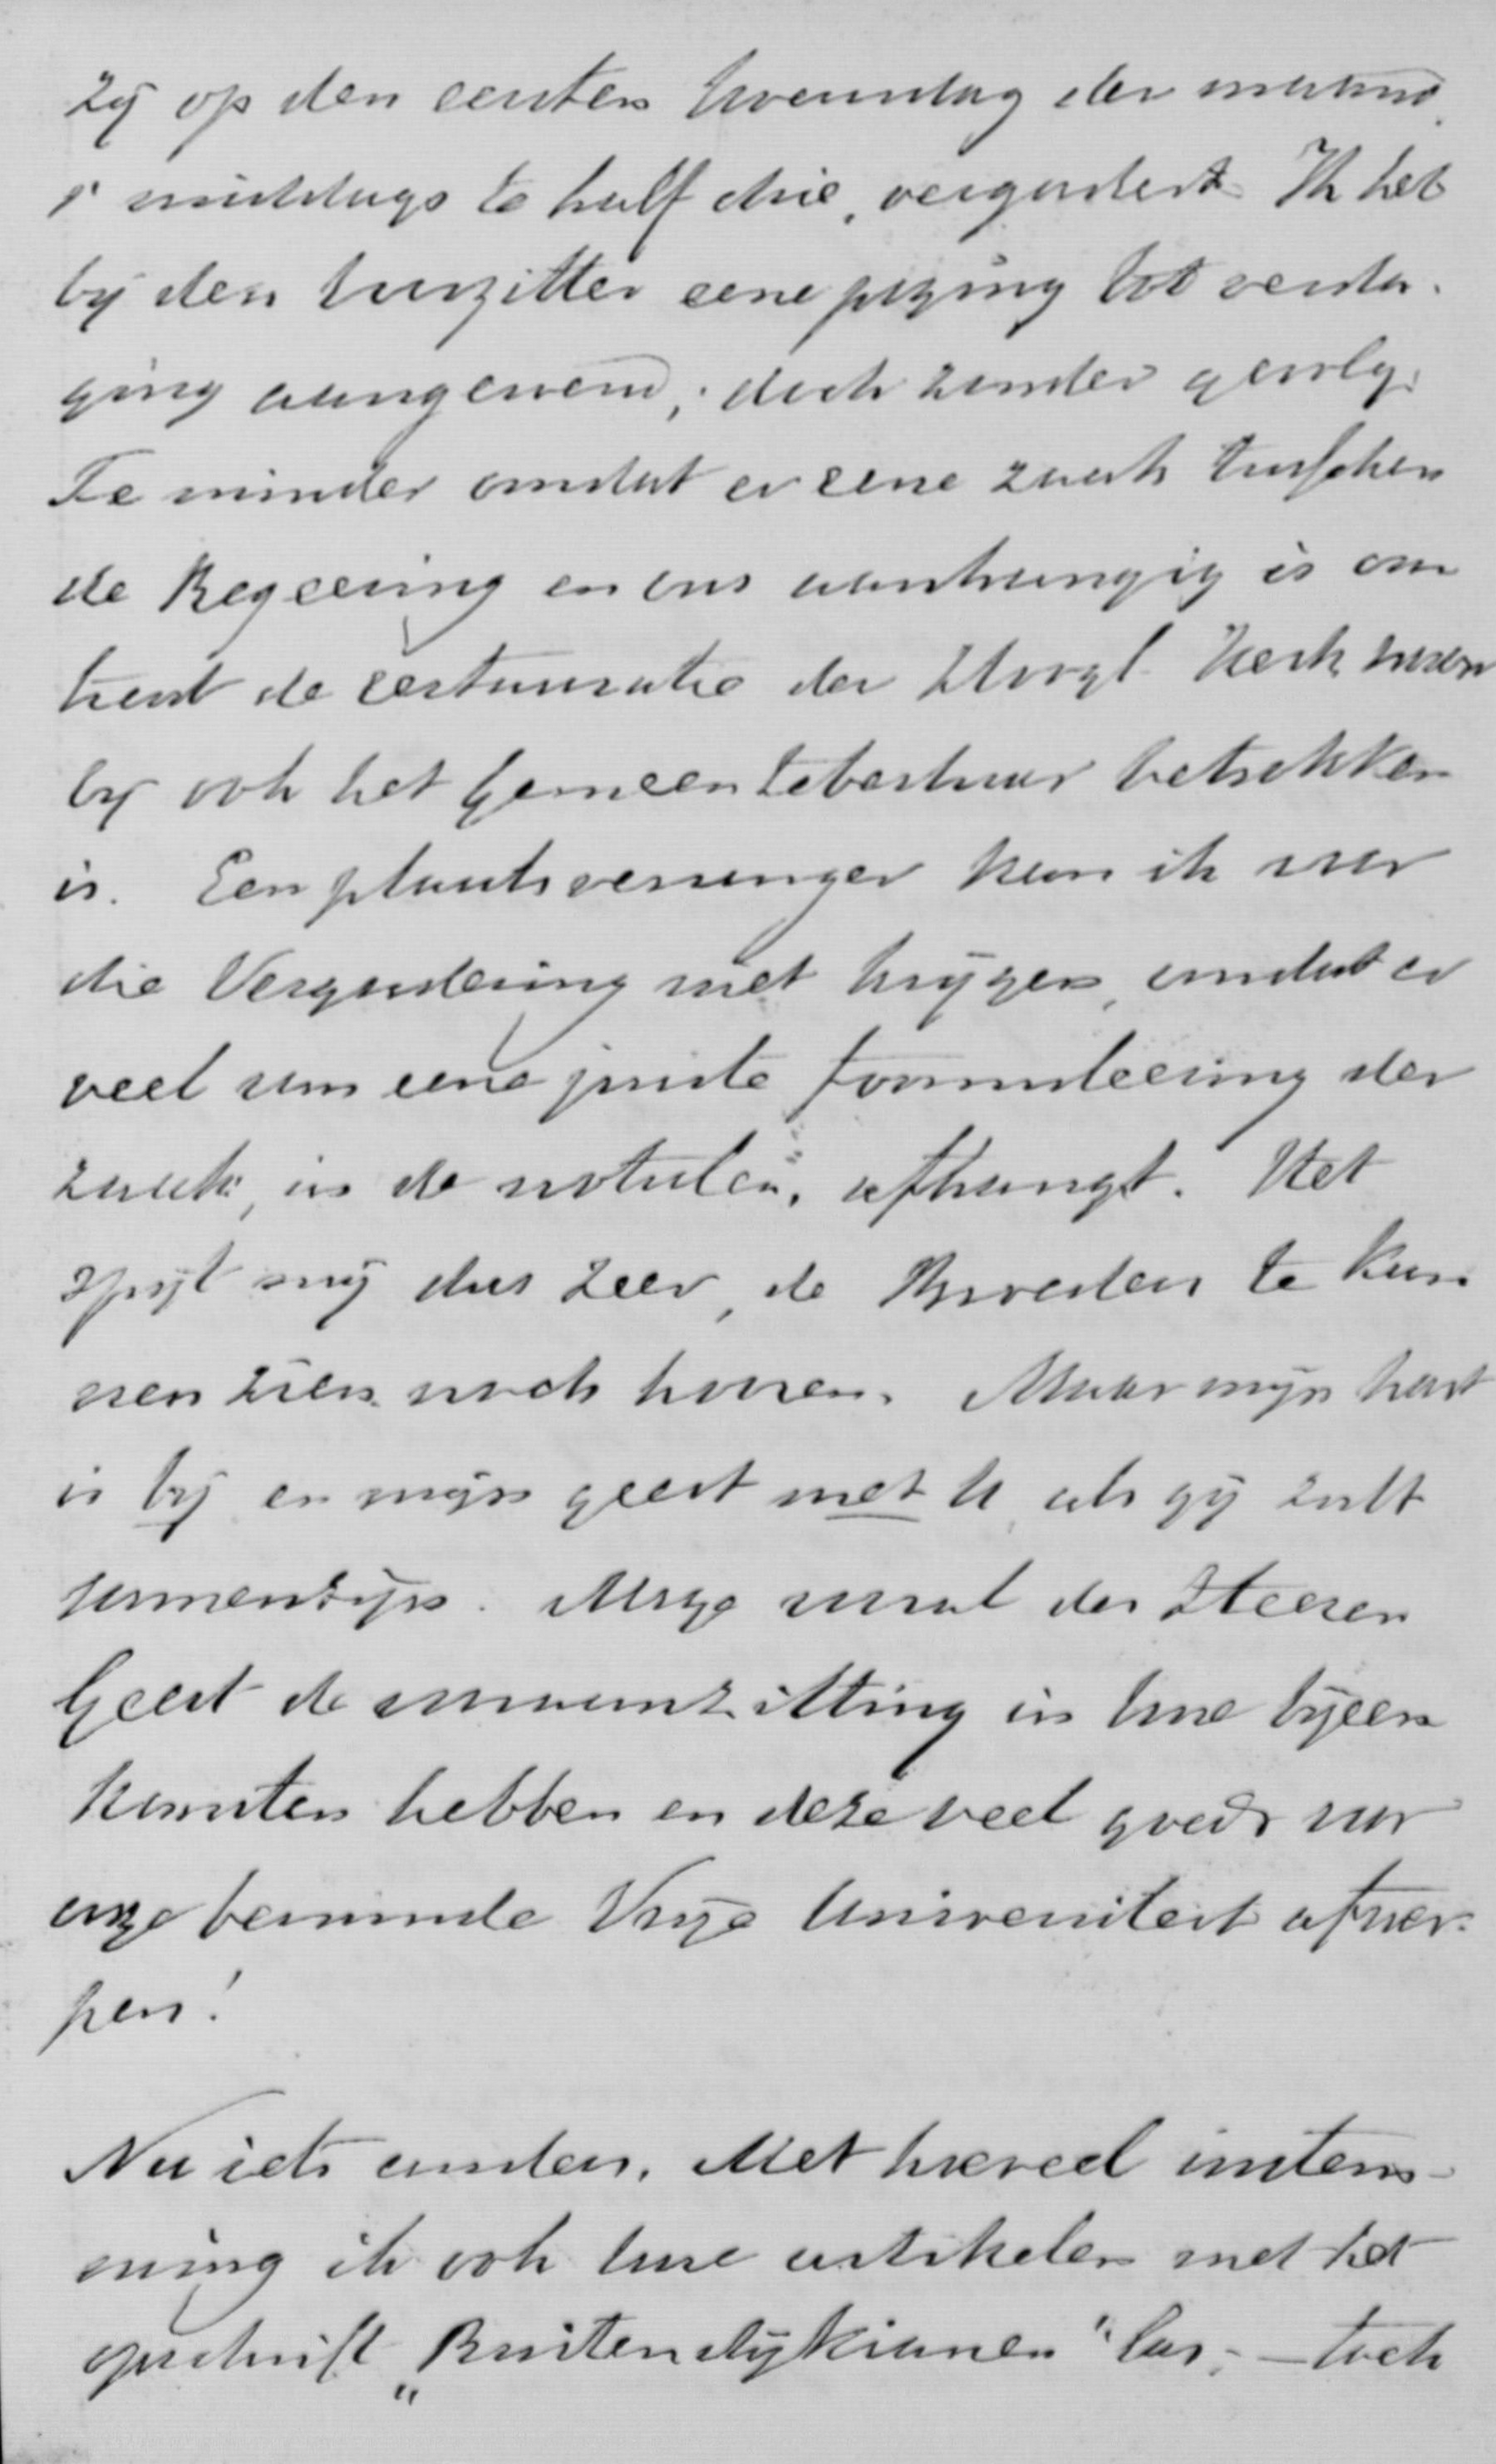 zij op den eersten woensdag der maand
's middags te half drie, vergadert. Ik heb
bij den voorzitter eene poging tot verda-
ging aangewend; doch zonder gevolg.
Te minder omdat er eene zaak tusschen
de Regeering en ons aanhangig is om
trent de restauratie der Hoogl. Kerk waar
bij ook het Gemeentebestuur betrokken
is. Een plaatsvervanger kan ik voor
die Vergadering niet krijgen, omdat er
veel van eene juiste formuleering der
zaak, in de notulen, afhangt. Het
spijt mij dus zeer, de Broeders te kun
nen zien noch hooren. Maar mijn hart
is bij en mijn geest met U, als gij zult
samenzijn. Moge vooral des Heeren
Geest de mannenzitting in Uwe bijeen
komsten hebben en deze veel goeds voor
onze beminde Vrije Universiteit afwer-
pen!
Nu iets anders. Met hoeveel instem-
ming ik ook Uwe artikelen met het
opschrift „Buitendijkianen" las; — toch